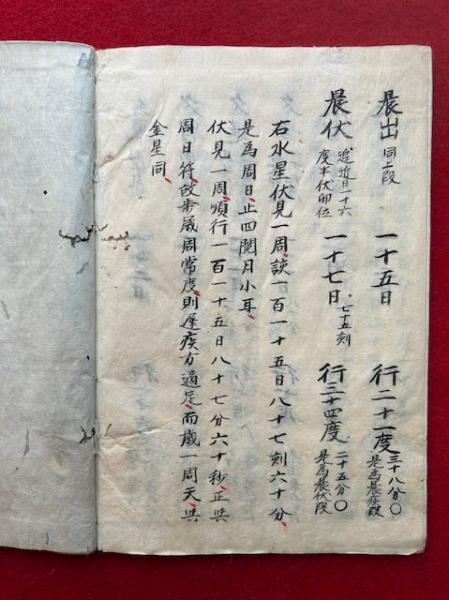 晨出 同上段 一十五日 行二十一度 三十八分〇 是為晨疾段
晨伏 追近日一十六度半伏卯位 一十七日 七十五刻 行三十四度 二十五分〇 是為晨伏段
右水星伏見一周、談一百一十五日八十七刻六十分、
是為周日、止四閱月小耳、
伏見一周、順行一百一十五日八十七分六十秒正與
周日符、故步歲周常度、則遲疾方適足、而歲一周天、與
金星同、